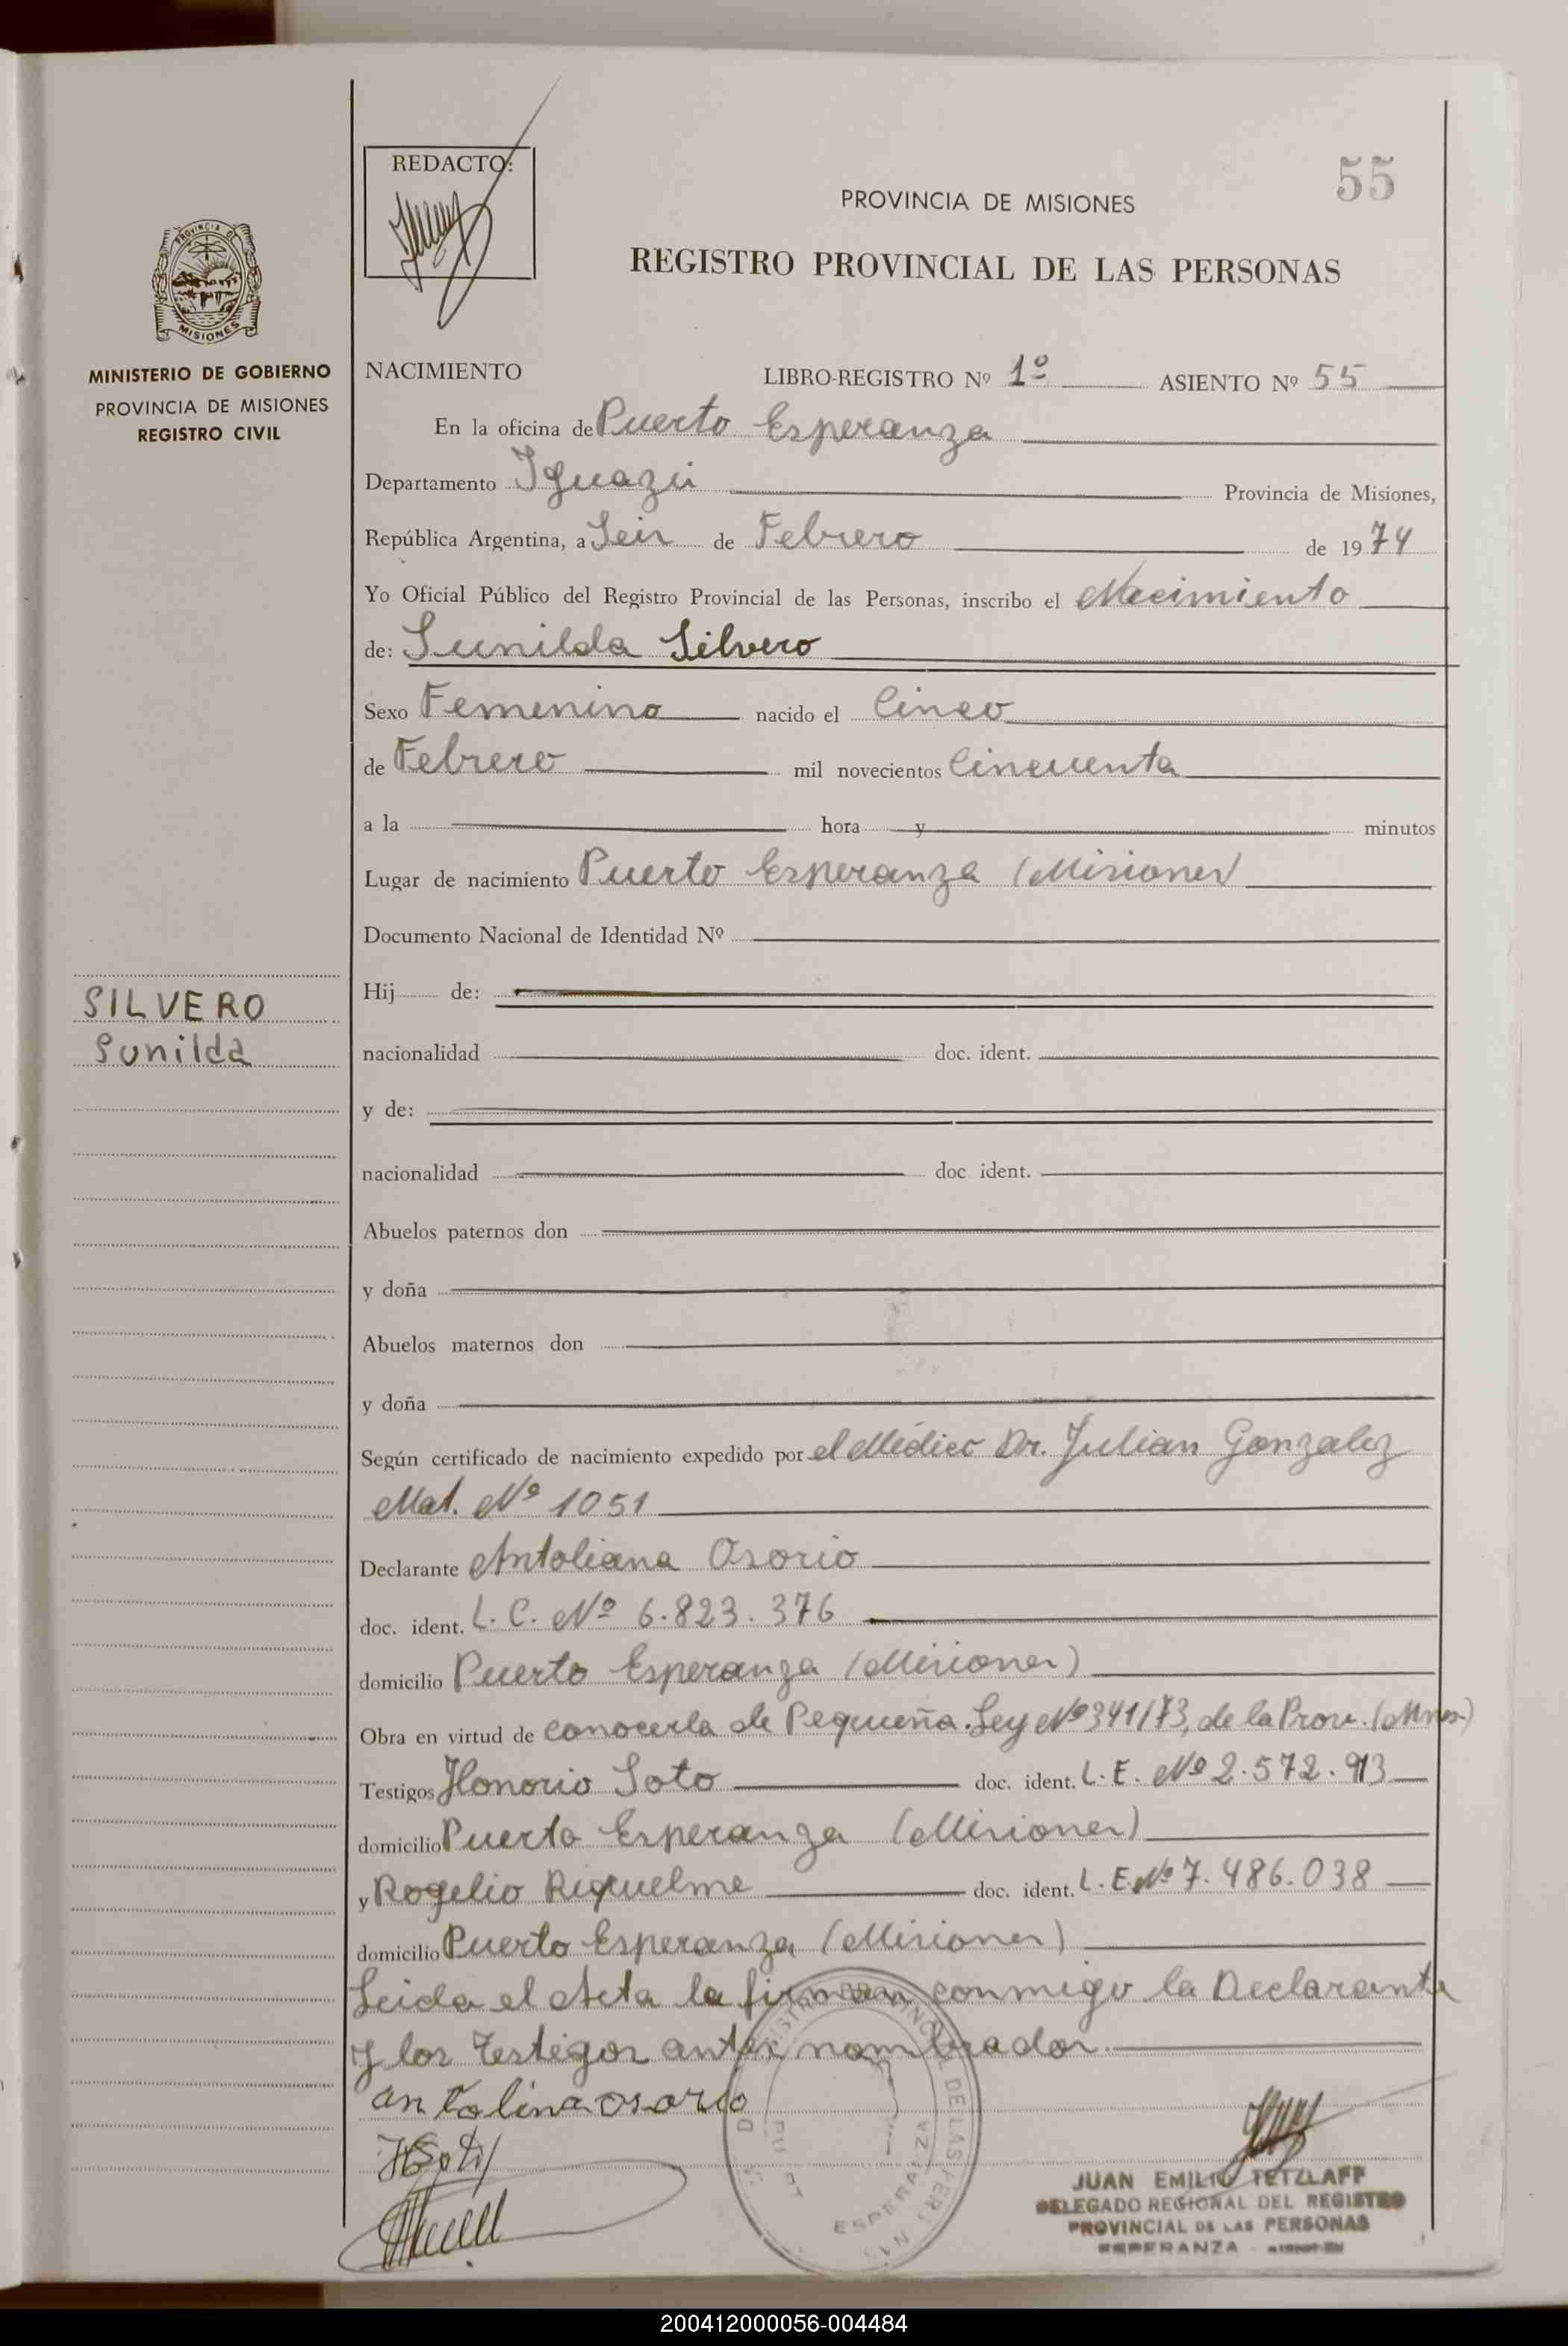 REDACTO:
55
PROVINCIA DE MISIONES
REGISTRO PROVINCIAL DE LAS PERSONAS
PROVINCIA DE
MISIONES
MINISTERIO DE GOBIERNO
PROVINCIA DE MISIONES
REGISTRO CIVIL
NACIMIENTO LIBRO-REGISTRO Nº 1º ASIENTO Nº 55
En la oficina de Puerto Esperanza
Departamento Iguazú Provincia de Misiones,
República Argentina, a Seis de Febrero de 1974
Yo Oficial Público del Registro Provincial de las Personas, inscribo el Nacimiento
de: Sunilda Silvero
Sexo Femenino nacido el Cinco
de Febrero mil novecientos Cincuenta
a la hora y minutos
Lugar de nacimiento Puerto Esperanza (Misiones)
Documento Nacional de Identidad Nº
SILVERO
Sunilda
Hij de:
nacionalidad doc. ident.
y de:
nacionalidad doc. ident.
Abuelos paternos don
y doña
Abuelos maternos don
y doña
Según certificado de nacimiento expedido por el Médico Dr. Julian Gonzalez
Mat. Nº 1051
Declarante Antoliana Osorio
doc. ident. L. C. Nº 6.823.376
domicilio Puerto Esperanza (Misiones)
Obra en virtud de conocerla de Pequeña. Ley Nº 341/73, de la Prov. (Mnes.)
Testigos Honorio Soto doc. ident. L. E. Nº 2.572.913
domicilio Puerto Esperanza (Misiones)
y Rogelio Riquelme doc. ident. L. E. Nº 7.486.038
domicilio Puerto Esperanza (Misiones)
Leida el Acta la firman conmigo la Declarante
y los Testigos antes nombrados.
antolina osorio
HSoto
JUAN EMILIO TETZLAFF
DELEGADO REGIONAL DEL REGISTRO
PROVINCIAL DE LAS PERSONAS
ESPERANZA
200412000056-004484